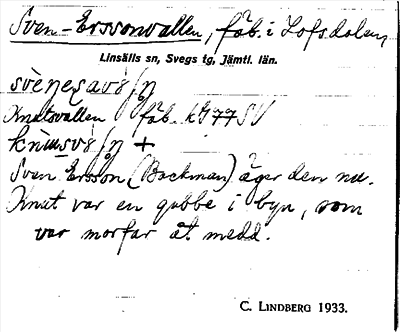 Sven-Erssonvallen, fäb. i Lofsdalen,
Linsälls sn, Svegs tg, Jämtl. län.
Knutsvallen fäb. kJ 77 SV
Sven Ersson (Backman) äger den nu.
Knut var en gubbe i byn, som
var morfar åt medd.
C. LINDBERG 1933.